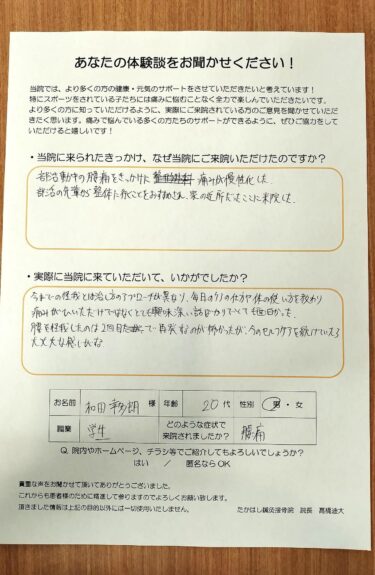 あなたの体験談をお聞かせください！
当院では、より多くの方の健康・元気のサポートをさせていただきたいと考えています！
特にスポーツをされている子たちには痛みに悩むことなく全力で楽しんでいただきたいです。
より多くの方に知っていただけるように、実際にご来院されている方のご意見を聞かせていただ
きたく思います。痛みで悩んでいる多くの方たちのサポートができるように、ぜひご協力をして
いただけると嬉しいです！
・当院に来られたきっかけ、なぜ当院にご来院いただけたのですか？
部活動中の腰痛をきっかけに 痛みが慢性化した.
部活の先輩から整体に行くことをおすすめされ、家の近所だったここに来院した.
・実際に当院に来ていただいて、いかがでしたか？
今までの怪我とは治し方のアプローチが異なり、毎日の の仕方や体の使い方を教わり
痛みが ただけではなくとても興味深い話ばかりでとても面白かった.
腰を怪我したのは2回目 再発するのが怖かったが、今のセルフケアを続けていたら
大丈夫な気がしたな
お名前 和田 様 年齢 20代 性別 男・女
職業 学生 どのような症状で
来院されましたか？ 腰痛
Q. 院内やホームページ、チラシ等でご紹介してもよろしいでしょうか？
はい / 匿名ならOK
貴重な声をお聞かせて頂いてありがとうございました。
これからも患者様のために精進して参りますのでよろしくお願い致します。
頂きました情報は上記の目的以外には一切使用いたしません。 たかはし鍼灸接骨院 院長 髙橋達大